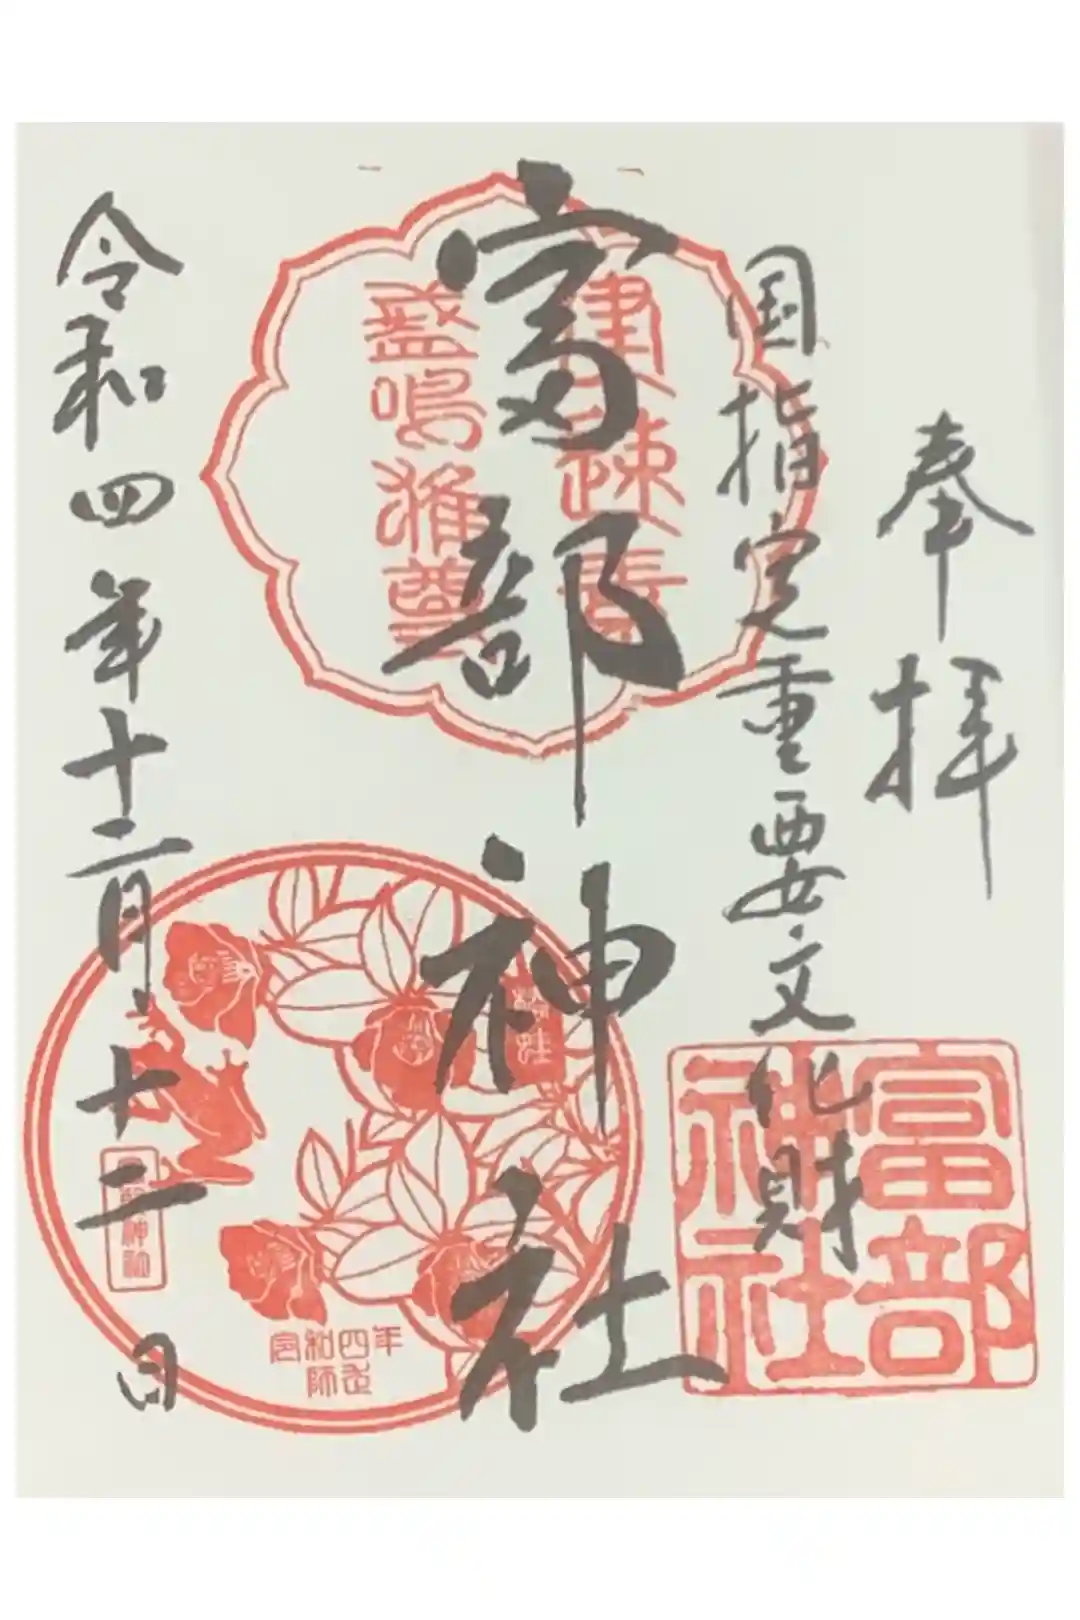 奉拝
国指定重要文化財
富部神社
令和四年十二月十二日
建速須
盞嗚猶尊
富部
神社
富部神社
令和四年
師走